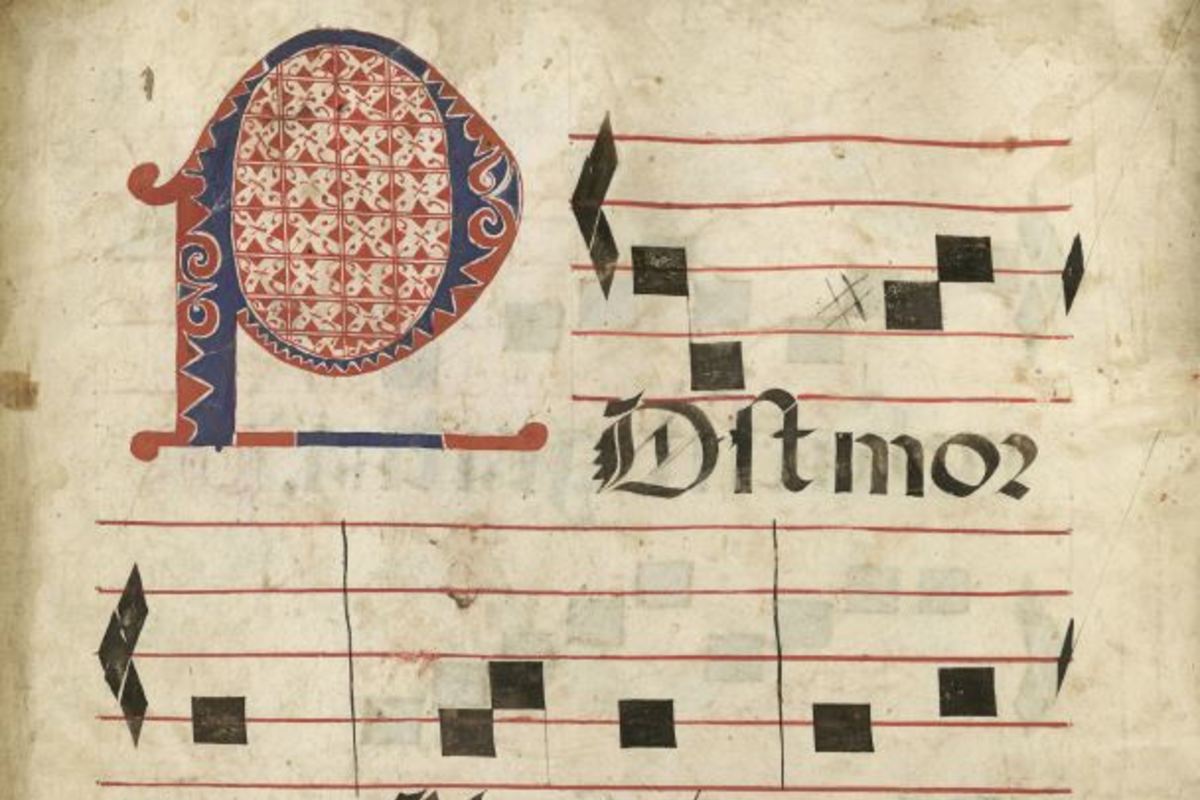 POſt mor